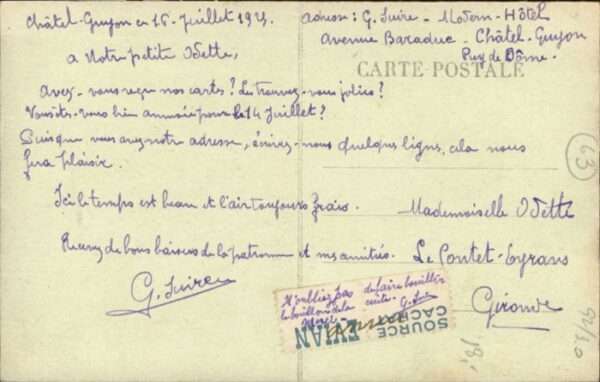 Châtel-Guyon ce 16 Juillet 1921.
adresse: G. Suire - Modern-Hôtel
Avenue Baraduc - Châtel-Guyon
Puy de Dôme.
CARTE-POSTALE
A Notre petite Odette,
Avez-vous reçu nos cartes? Les trouvez-vous jolies?
Vous êtes-vous bien amusée pour le 14 Juillet?
Puisque vous avez notre adresse, écrivez-nous quelques lignes, cela nous
fera plaisir.
Ici le temps est beau et l'air toujours frais.
Recevez de bons baisers de la patronne et mes amitiés.
G. Suire
Mademoiselle Odette
Le Pontet-Eyrans
Gironde
N'oubliez pas de faire bouillir
le bouillon de la
Merci. G. Suire
SOURCE
CACHAT
EVIAN
63